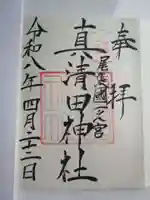 奉拝
尾張國一之宮
真清田神社
令和八年四月二十二日